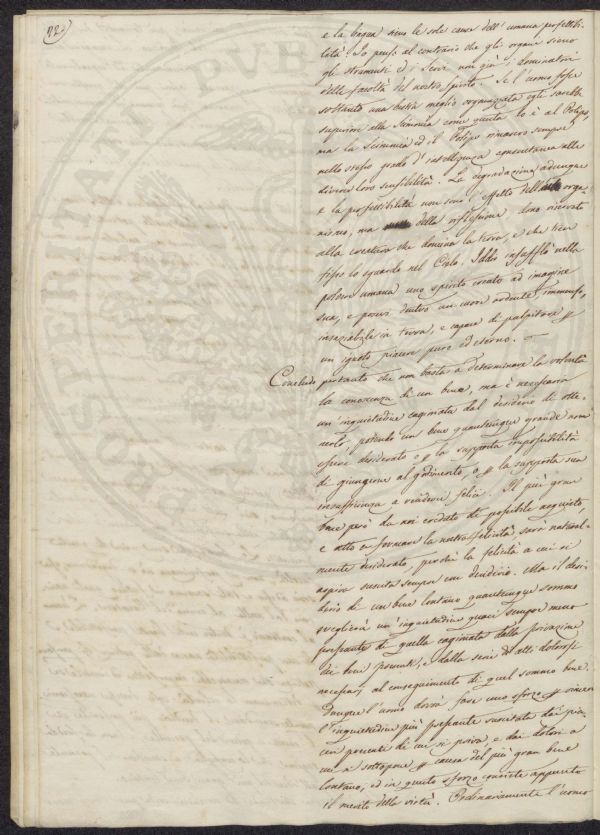 22
e la lingua sieno le sole cause dell' umana perfettibi-
lità? Io penso al contrario che gli organi sieno
gli stromenti ed i servi non già i dominatori
delle facoltà del nostro spirito. Se l'uomo fosse
soltanto una bestia meglio organizzata egli sarebbe
superiore alla Scimmia come questa lo è al Polipo,
ma la Scimmia ed il Polipo rimasero sempre
nello stesso grado d'intelligenza conseguente alla
diversa loro sensibilità. La degradazione adunque
e la perfettibilità non sono l'effetto dell' orga-
nismo, ma della riflessione dono riservato
alla creatura che domina la terra, e che tien
fisso lo sguardo nel Cielo. Iddio insufflò nella
polvere umana uno spirito creato ad imagine
sua, e posevi dentro un cuore ardente, immenso,
insaziabile in terra, e capace di palpitare p
un ignoto piacere puro ed eterno. —
Concludo pertanto che non basta a determinare la volontà
la conoscenza di un bene, ma è necessaria
un' inquietudine cagionata dal desiderio di otte-
nerlo: potendo un bene quantunque grande non
essere desiderato o p la supposta impossibilità
di giungerne al godimento, o p la supposta sua
insufficienza a renderne felici. Il più gran
bene però da noi creduto di possibile acquisto,
e atto a formare la nostra felicità, sarà natural-
mente desiderato, perchè la felicità a cui si
aspira suscita sempre un desiderio. Ma il desi-
derio di un bene lontano quantunque sommo
sveglierà un' inquietudine quasi sempre meno
pressante di quella cagionata dalla privazione
dei beni presenti, e dalla serie di atti dolorosi
necessarj al conseguimento di quel sommo bene.
Dunque l'uomo dovrà fare uno sforzo p vincere
l'inquietudine più pressante suscitata dai pia-
ceri presenti di cui si priva e dai dolori a
cui si sottopone p causa del più gran bene
lontano, ed in questo sforzo consiste appunto
il merito della virtù. Ordinariamente l'uomo